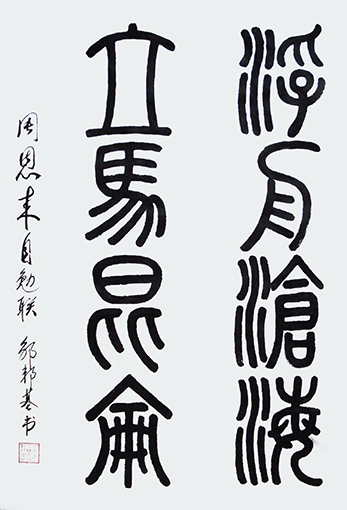 浮舟滄海
立馬昆侖
周恩来自勉联 邦基书